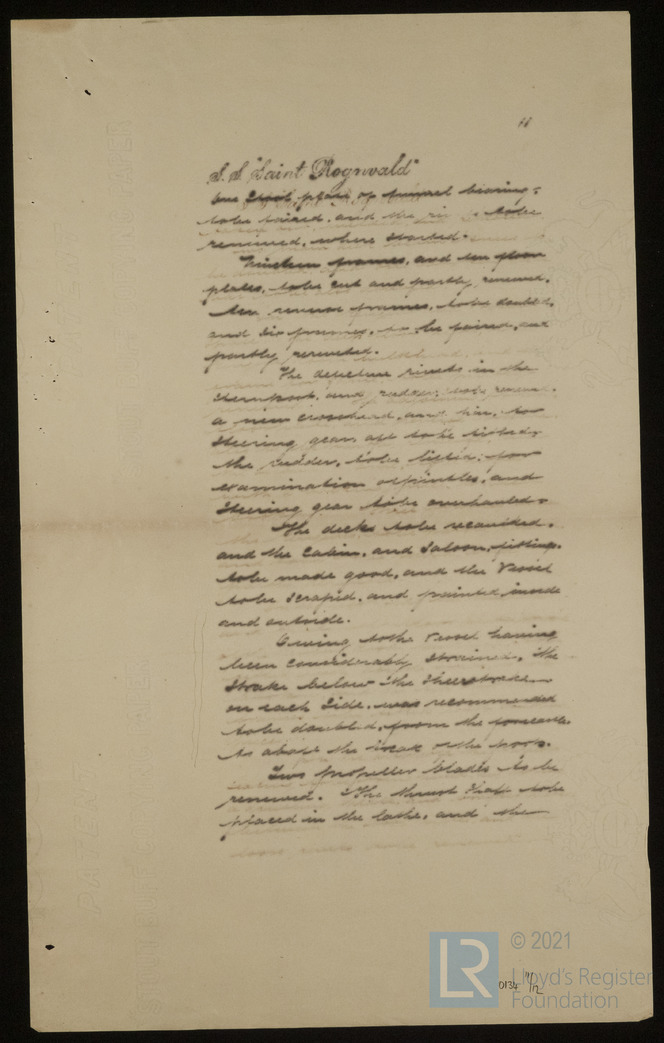 11
S.S. "Saint Rognvald"
One steel plate of tunnel bearing
to be faired, and the to be
renewed, where started.
frames, and ten floor
plates, to be cut and partly renewed.
Ten reverse frames, to be doubled,
and six frames, to be faired, and
partly renewed.
The defective rivets in the
sternpost, and rudder, to be renewed.
a new crosshead, and for
steering gear aft to be fitted,
the rudder, to be lifted, for
examination of pintles, and
steering gear to be overhauled.
The decks to be recaulked,
and the Cabin, and Saloon, fittings
to be made good, and the Vessel
to be scraped, and painted inside
and outside.
Owing to the Vessel having
been considerably strained, the
strake below the sheerstrake
on each side, was recommended
to be doubled, from the forecastle
to abaft the break of the poop.
Two propeller blades to be
renewed. The thrust shaft to be
placed in the lathe, and the
© 2021
LR
Lloyd's Register
Foundation
0134